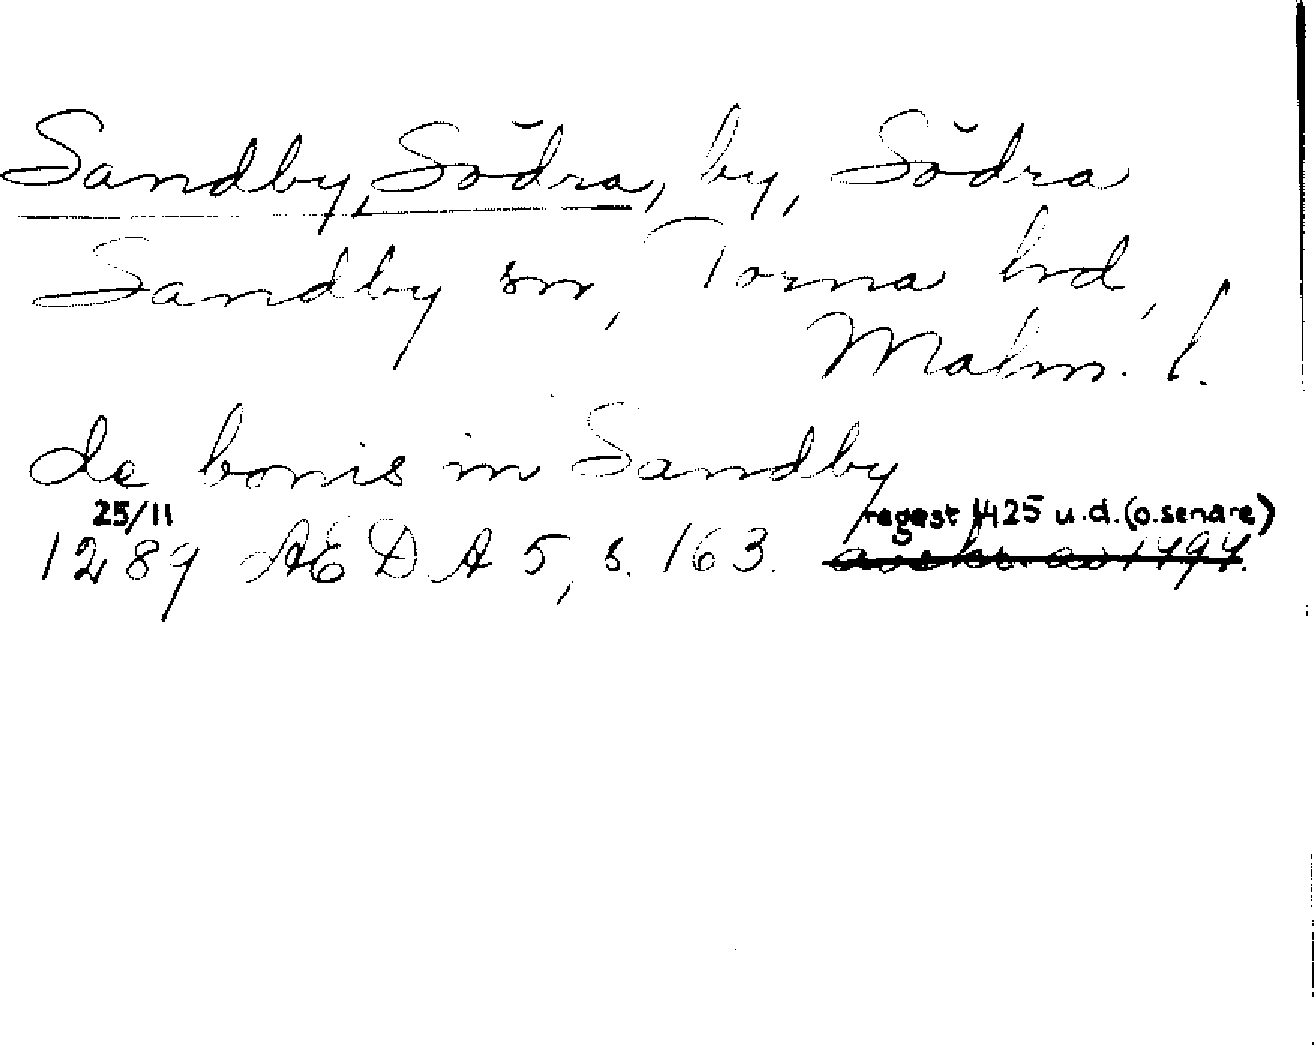 Sandby, Södra, by, Södra
Sandby sn, Torna hd,
Malm. l.
de bonis in Sandby
25/11 regest 1425 u.d. (o. senare)
1289 AEDA 5, s. 163. 1494.